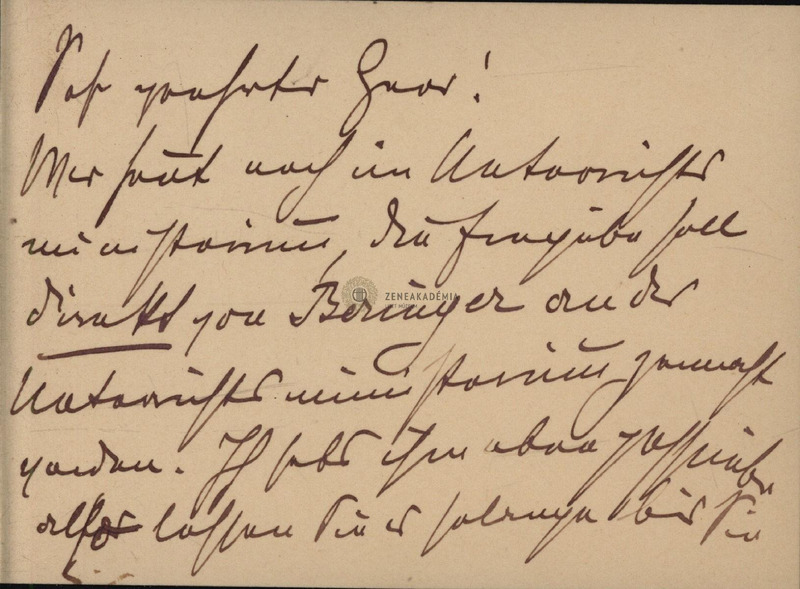 Sehr geehrter Herr!
War heut noch im Unterrichts
ministerium, die Eingabe soll
direkt von Beringer an das
ZENEAKADÉMIA
Unterrichtsministerium gemacht
werden. Ich habs ihm eben geschrieben
also lassen Sie es solange bis Sie